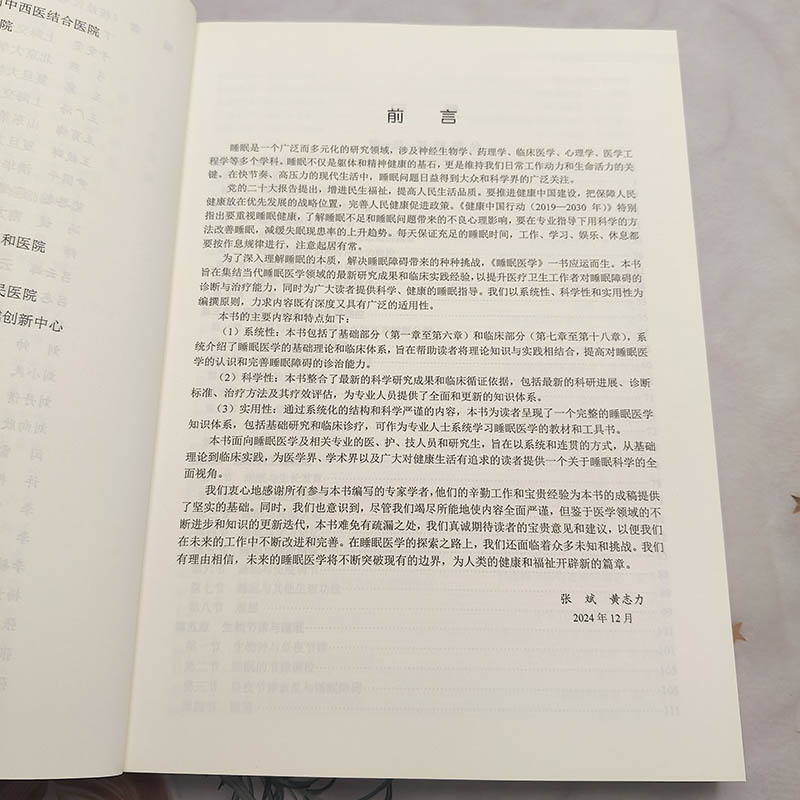 中西医结合医院
院
和医院
民医院
创新中心
前 言
睡眠是一个广泛而多元化的研究领域，涉及神经生物学、药理学、临床医学、心理学、医学工
程学等多个学科。睡眠不仅是躯体和精神健康的基石，更是维持我们日常工作动力和生命活力的关
键。在快节奏、高压力的现代生活中，睡眠问题日益得到大众和科学界的广泛关注。
党的二十大报告提出，增进民生福祉，提高人民生活品质。要推进健康中国建设，把保障人民
健康放在优先发展的战略位置，完善人民健康促进政策。《健康中国行动（2019—2030 年）》特别
指出要重视睡眠健康，了解睡眠不足和睡眠问题带来的不良心理影响，要在专业指导下用科学的方
法改善睡眠，减缓失眠现患率的上升趋势。每天保证充足的睡眠时间，工作、学习、娱乐、休息都
要按作息规律进行，注意起居有常。
为了深入理解睡眠的本质，解决睡眠障碍带来的种种挑战，《睡眠医学》一书应运而生。本书
旨在集结当代睡眠医学领域的最新研究成果和临床实践经验，以提升医疗卫生工作者对睡眠障碍的
诊断与治疗能力，同时为广大读者提供科学、健康的睡眠指导。我们以系统性、科学性和实用性为
编撰原则，力求内容既有深度又具有广泛的适用性。
本书的主要内容和特点如下：
（1）系统性：本书包括了基础部分（第一章至第六章）和临床部分（第七章至第十八章），系
统介绍了睡眠医学的基础理论和临床体系，旨在帮助读者将理论知识与实践相结合，提高对睡眠医
学的认识和完善睡眠障碍的诊治能力。
（2）科学性：本书整合了最新的科学研究成果和临床循证依据，包括最新的科研进展、诊断
标准、治疗方法及其疗效评估，为专业人员提供了全面和更新的知识体系。
（3）实用性：通过系统化的结构和科学严谨的内容，本书为读者呈现了一个完整的睡眠医学
知识体系，包括基础研究和临床诊疗，可作为专业人士系统学习睡眠医学的教材和工具书。
本书面向睡眠医学及相关专业的医、护、技人员和研究生，旨在以系统和连贯的方式，从基础
理论到临床实践，为医学界、学术界以及广大对健康生活有追求的读者提供一个关于睡眠科学的全
面视角。
我们衷心地感谢所有参与本书编写的专家学者，他们的辛勤工作和宝贵经验为本书的成稿提供
了坚实的基础。同时，我们也意识到，尽管我们竭尽所能地使内容全面严谨，但鉴于医学领域的不
断进步和知识的更新迭代，本书难免有疏漏之处，我们真诚期待读者的宝贵意见和建议，以便我们
在未来的工作中不断改进和完善。在睡眠医学的探索之路上，我们还面临着众多未知和挑战。我们
有理由相信，未来的睡眠医学将不断突破现有的边界，为人类的健康和福祉开辟新的篇章。
张 斌 黄志力
2024 年 12 月